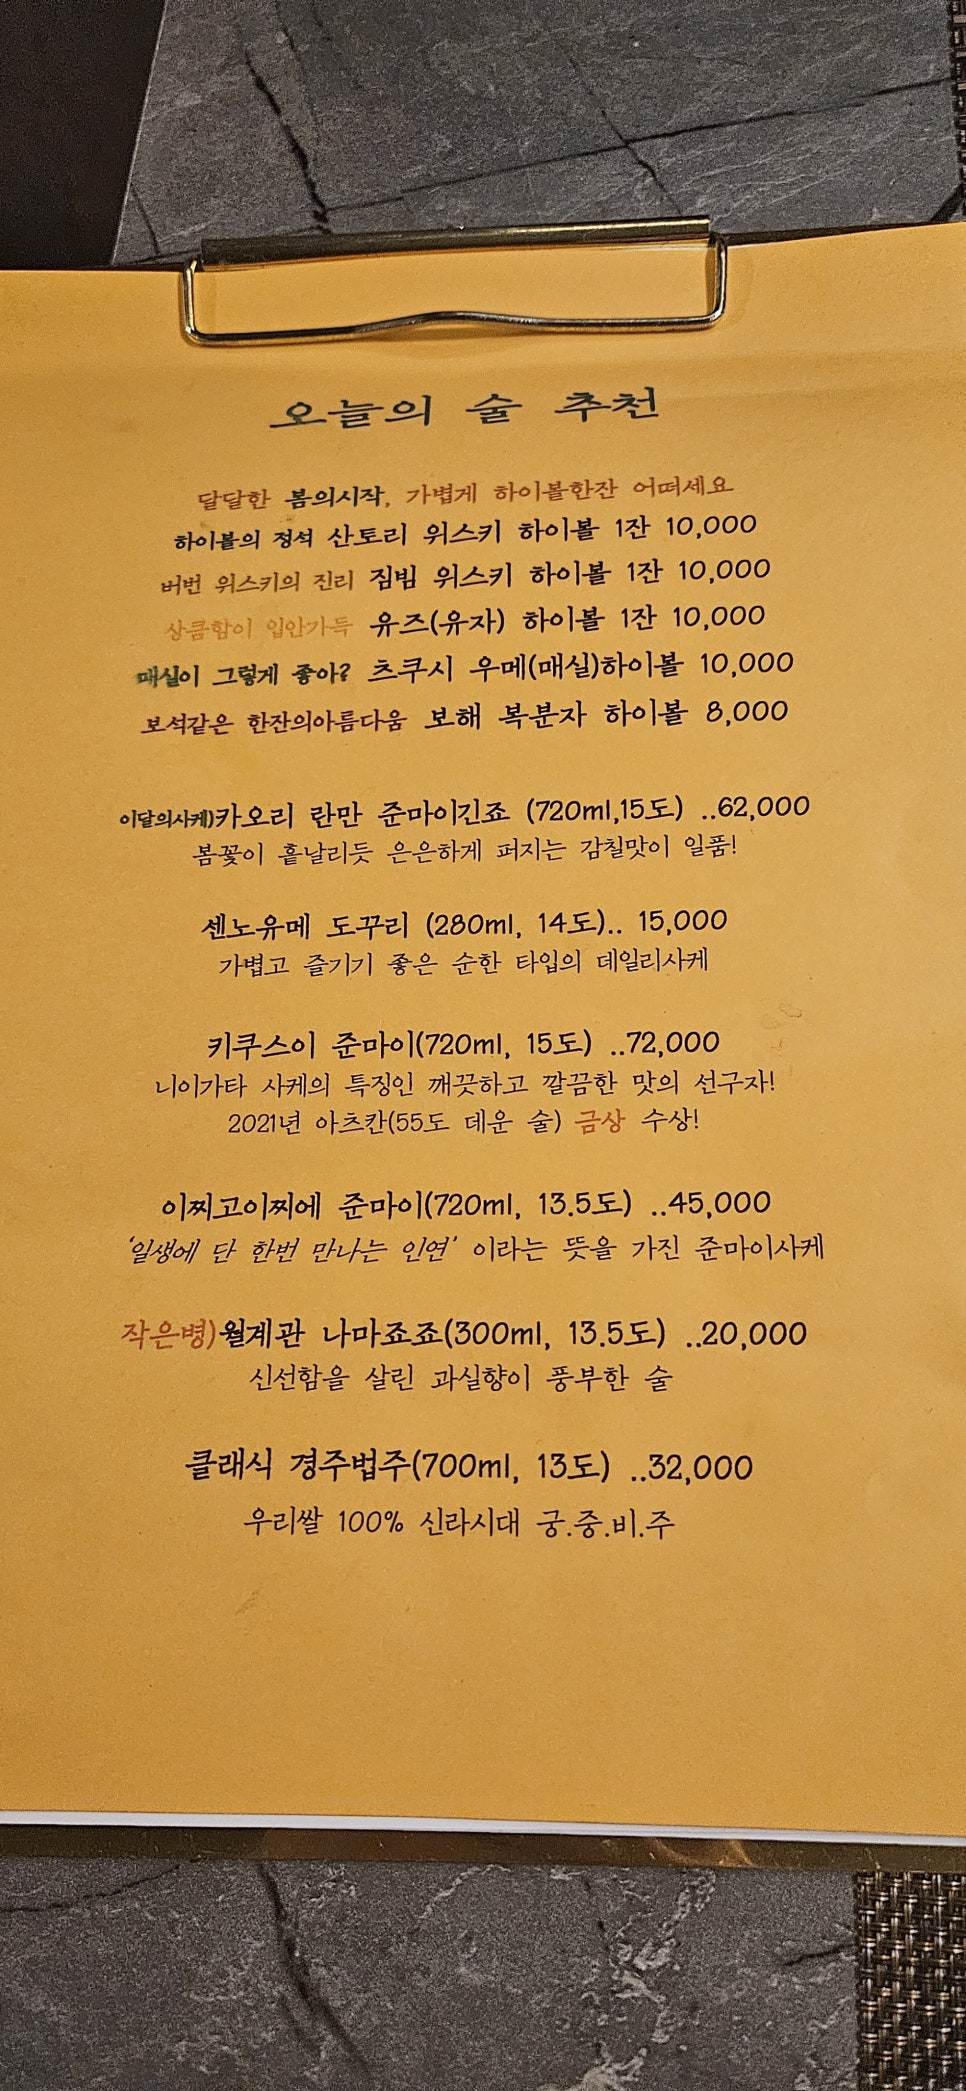 오늘의 술 추천
달달한 봄의시작, 가볍게 하이볼한잔 어떠세요
하이볼의 정석 산토리 위스키 하이볼 1잔 10,000
버번 위스키의 진리 짐빔 위스키 하이볼 1잔 10,000
상큼함이 입안가득 유즈(유자) 하이볼 1잔 10,000
매실이 그렇게 좋아? 츠쿠시 우메(매실)하이볼 10,000
보석같은 한잔의아름다움 보해 복분자 하이볼 8,000
이달의사케)카오리 란만 준마이긴죠 (720ml,15도) ..62,000
봄꽃이 흩날리듯 은은하게 퍼지는 감칠맛이 일품!
센노유메 도꾸리 (280ml, 14도).. 15,000
가볍고 즐기기 좋은 순한 타입의 데일리사케
키쿠스이 준마이(720ml, 15도) ..72,000
니이가타 사케의 특징인 깨끗하고 깔끔한 맛의 선구자!
2021년 아츠칸(55도 데운 술) 금상 수상!
이찌고이찌에 준마이(720ml, 13.5도) ..45,000
'일생에 단 한번 만나는 인연' 이라는 뜻을 가진 준마이사케
작은병)월계관 나마죠죠(300ml, 13.5도) ..20,000
신선함을 살린 과실향이 풍부한 술
클래식 경주법주(700ml, 13도) ..32,000
우리쌀 100% 신라시대 궁.중.비.주